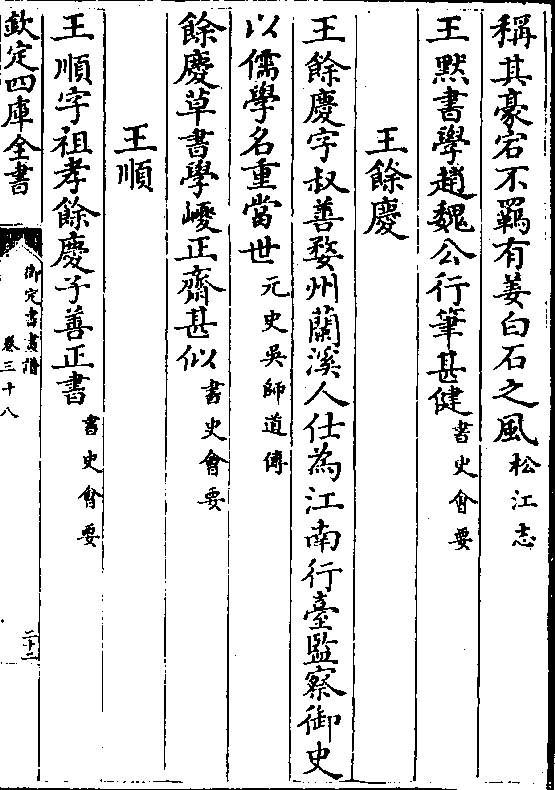 稱其豪宕不羈有姜白石之風松江志
王默書學趙魏公行筆甚健書史會要
王餘慶
王餘慶字叔善婺州蘭溪人仕為江南行臺監察御史
以儒學名重當世元史吳師道傳
餘慶草書學巙正齋甚似書史會要
王順
王順字祖孝餘慶子善正書書史會要
欽定四庫全書
御定書畫譜
卷三十八
二十二